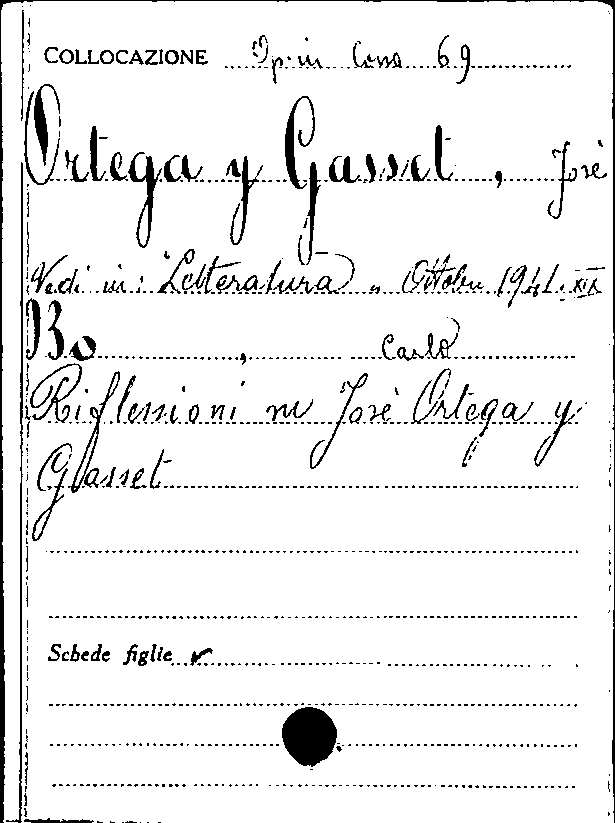 COLLOCAZIONE 69
Ortega y Gasset, José
Vedi in: "Letteratura" Ottobre 1941. XIX
Bo, Carlo
Riflessioni su José Ortega y
Gasset
Schede figlie ✓